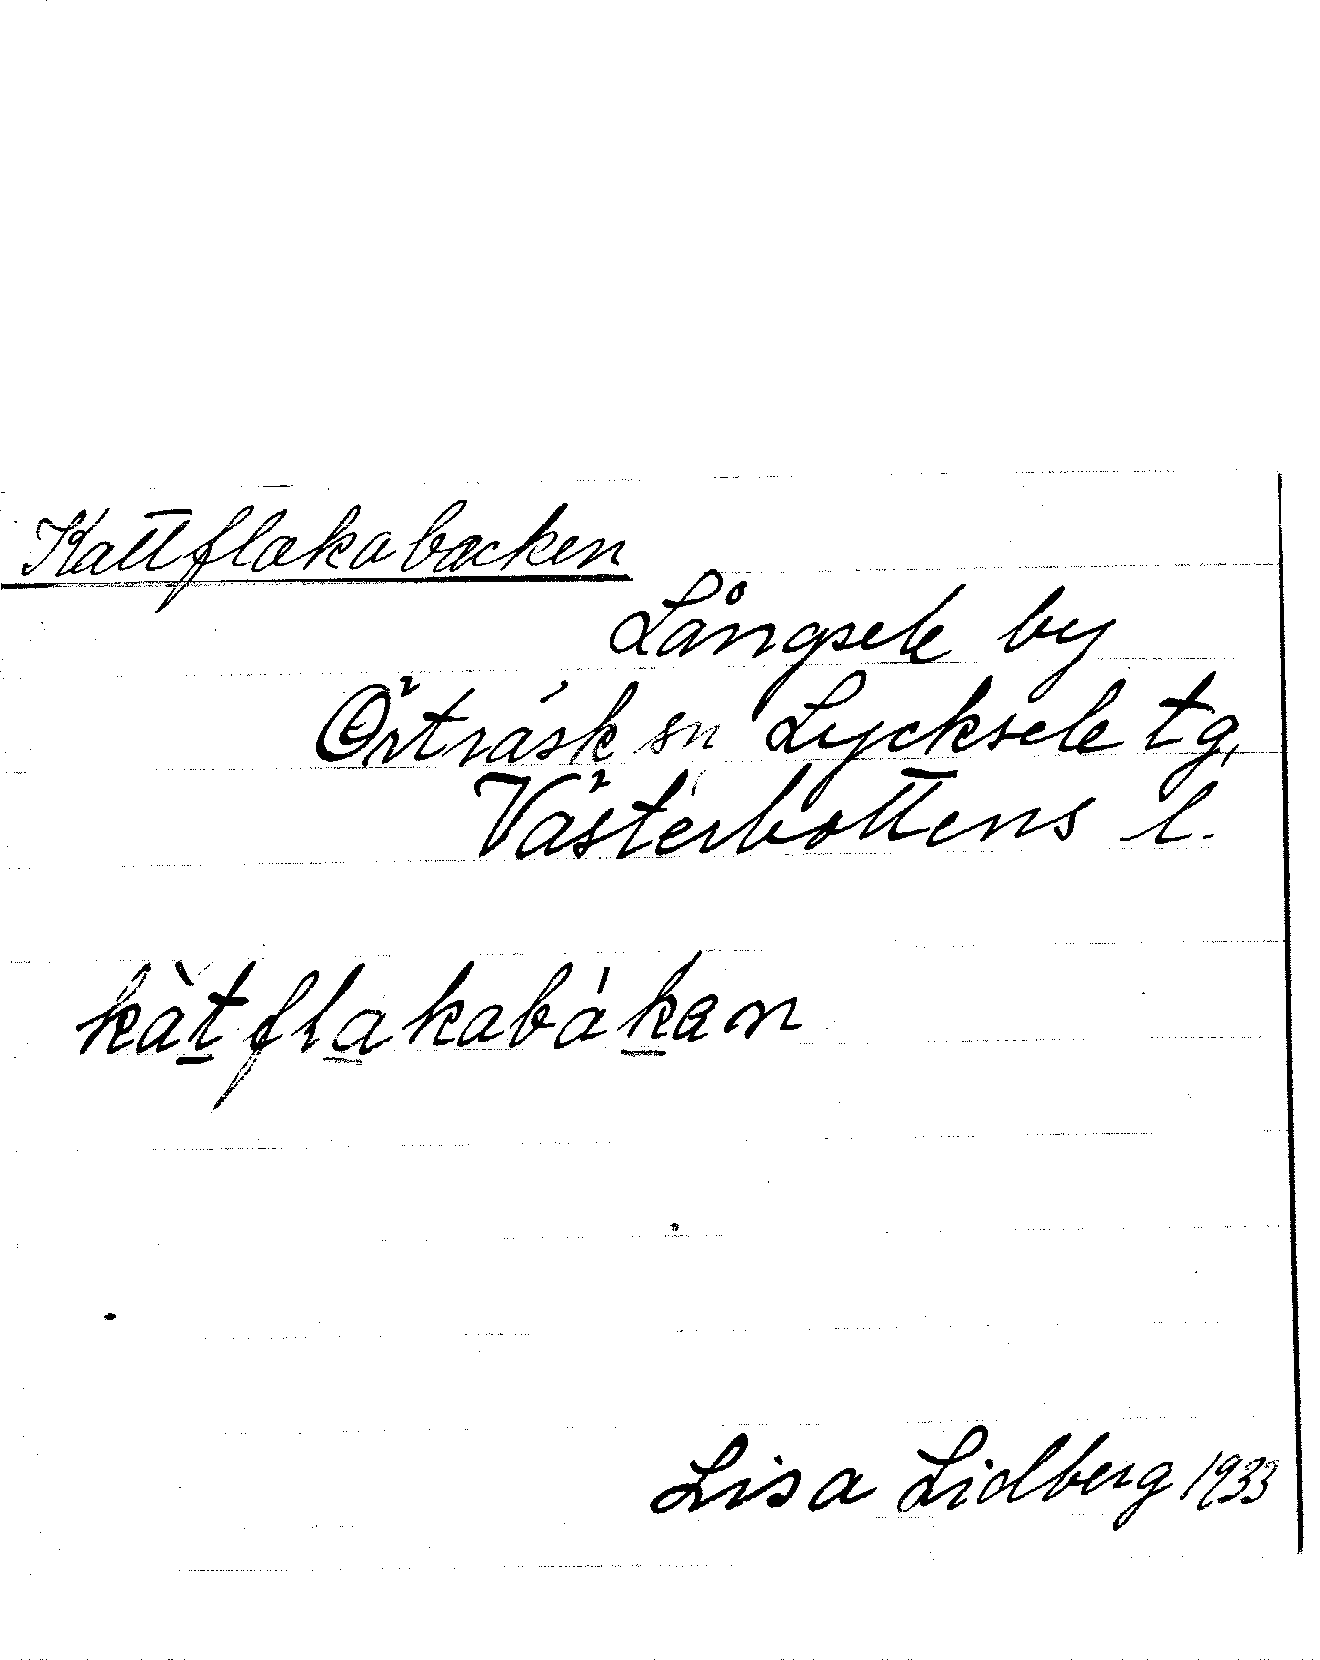 Kattflakabacken
Långsele by
Örträsk sn Lycksele tg,
Västerbottens l.
kàtflakabákan
Lisa Lidberg 1933